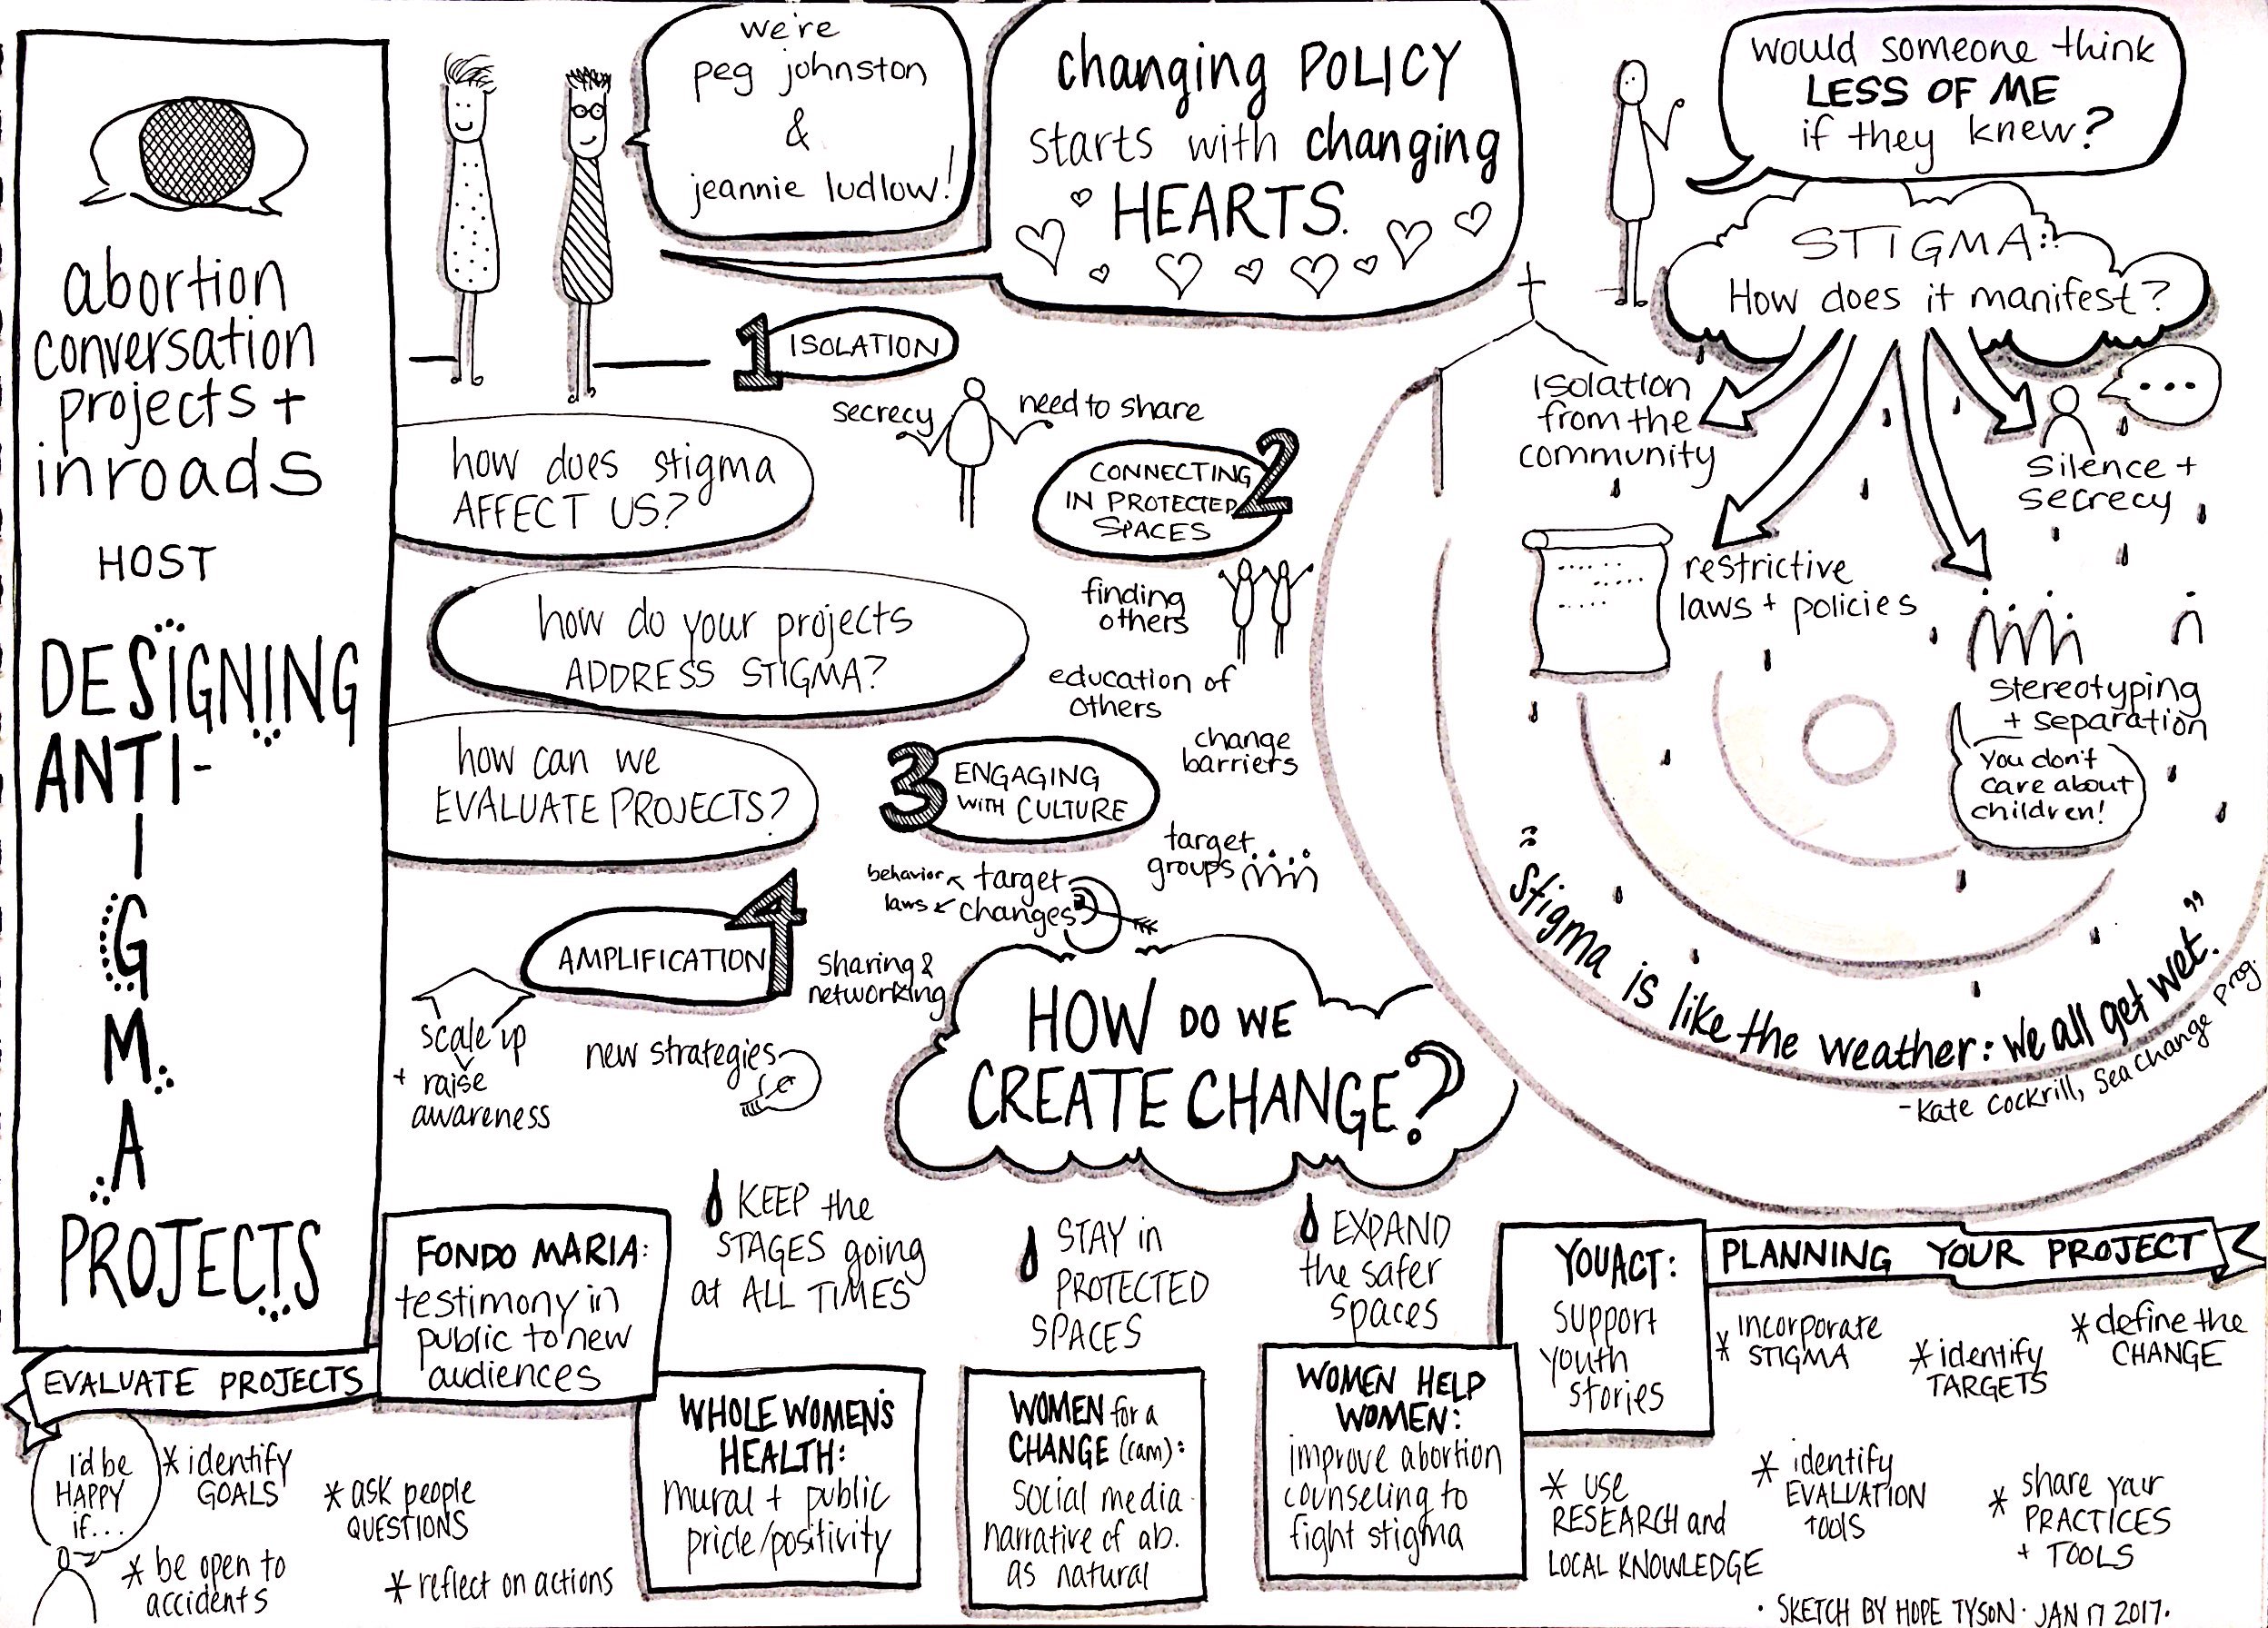 abortion
conversation
projects +
inroads
HOST
DESIGNING
ANTI-
STIGMA
PROJECTS
we're
peg johnston
&
jeannie ludlow!
changing POLICY
starts with changing
HEARTS.
would someone think
LESS OF ME
if they knew?
STIGMA:
How does it manifest?
isolation
from the
community
restrictive
laws + policies
...
silence +
secrecy
stereotyping
+ separation
you don't
care about
children!
"Stigma is like the weather: we all get wet."
- Kate Cockrill, Sea Change Prog.
how does stigma
AFFECT US?
how do your projects
ADDRESS STIGMA?
how can we
EVALUATE PROJECTS?
1 ISOLATION
secrecy
need to share
2
CONNECTING
IN PROTECTED
SPACES
finding
others
education of
others
change
barriers
3 ENGAGING
WITH CULTURE
target
groups
behavior
laws
target
changes
4
AMPLIFICATION
sharing &
networking
scale up
+ raise
awareness
new strategies
HOW DO WE
CREATE CHANGE?
KEEP the
STAGES going
at ALL TIMES
STAY in
PROTECTED
SPACES
EXPAND
the safer
spaces
FONDO MARIA:
testimony in
public to new
audiences
WHOLE WOMEN'S
HEALTH:
mural + public
pride/positivity
WOMEN for a
CHANGE (cam):
social media
narrative of ab.
as natural
WOMEN HELP
WOMEN:
improve abortion
counseling to
fight stigma
YOUACT:
support
youth
stories
EVALUATE PROJECTS
I'd be
HAPPY
if...
* identify
GOALS
* ask people
QUESTIONS
* be open to
accidents
* reflect on actions
PLANNING YOUR PROJECT
* incorporate
STIGMA
* identify
TARGETS
* define the
CHANGE
* use
RESEARCH and
LOCAL KNOWLEDGE
* identify
EVALUATION
TOOLS
* share your
PRACTICES
+ TOOLS
· SKETCH BY HOPE TYSON · JAN 17 2017 ·